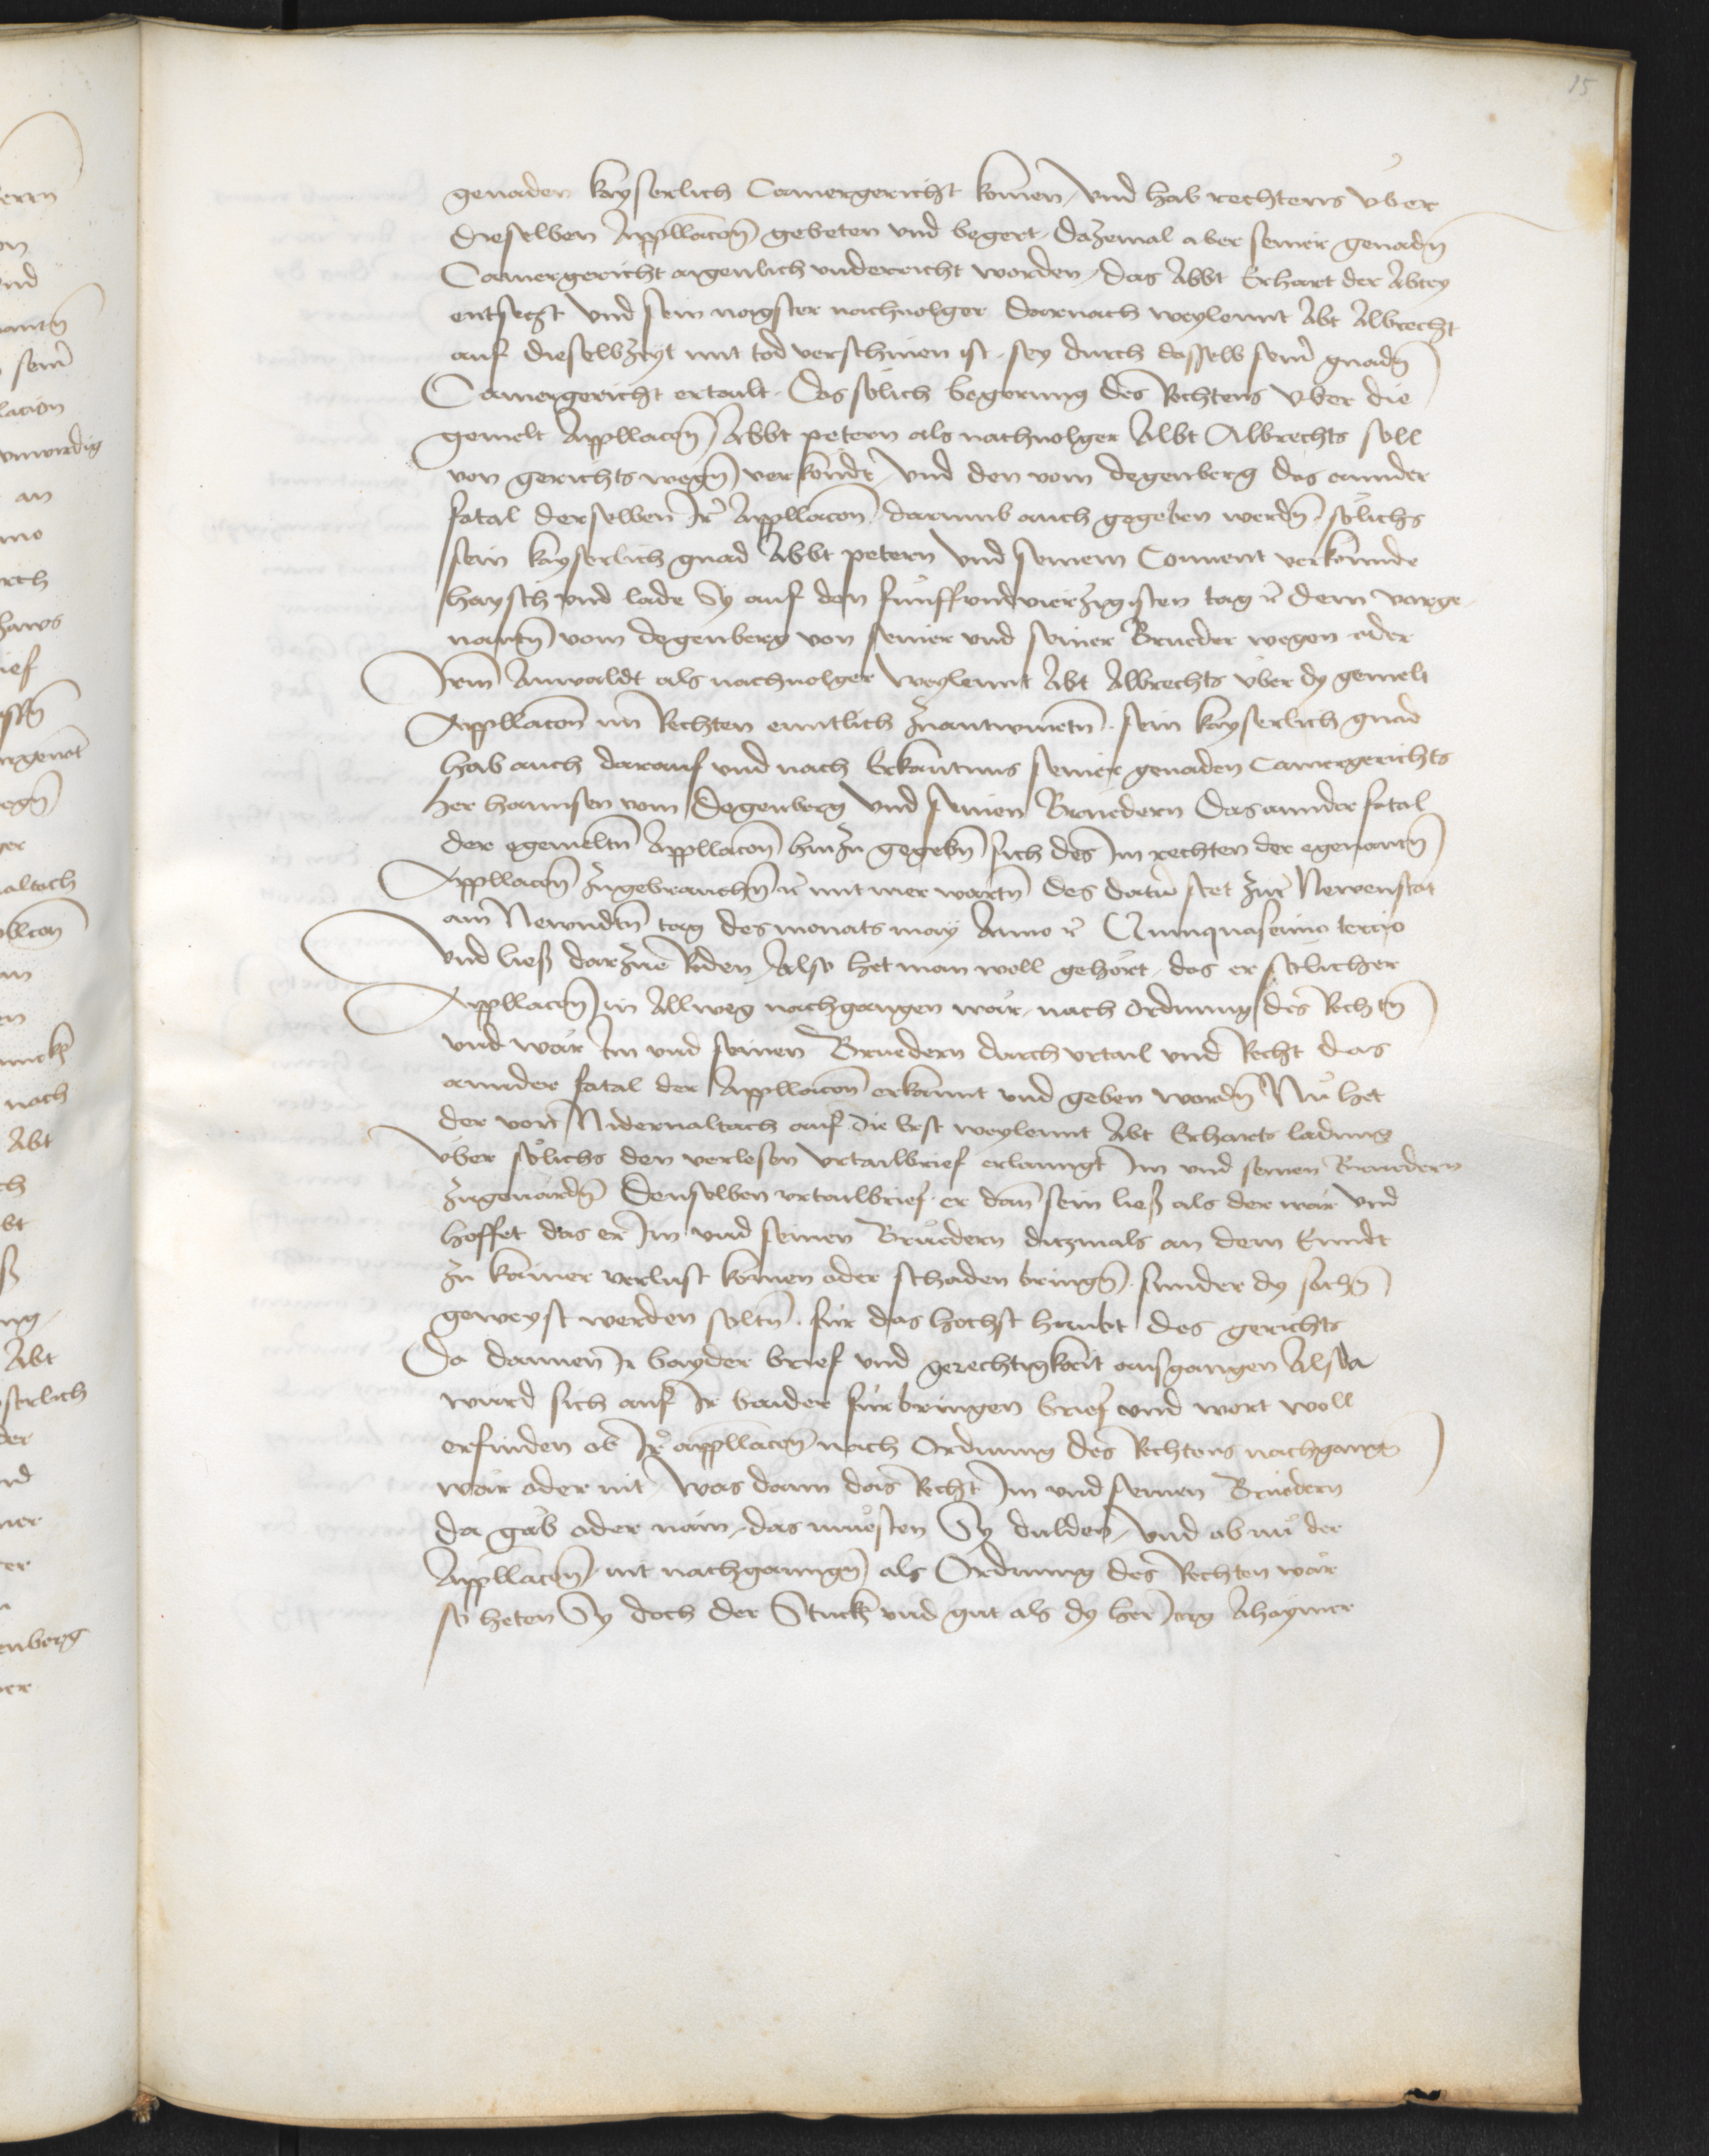 15
genaden kayserlich Camergericht komen, vnd hab rechtens vber
dieselben Appellacon gebeten vnd begert, dazemal aber seiner genadn
Camergericht aigenlich vnderricht worden, das Abbt Erhart der Abtey
entsetzt vnd sein nagster nachuolger darnach weylennt Abt Albrecht
auf dieselbzeyt mit tod verschinen ist, sey durch dasselb seiner gnadn
Camergericht ertailt, das solich begerung des Rechtens vber die
gemelt Appellacon Abbt petern als nachuolger Abbt Albrechts soll
von gerichts wegn verkondt, vnd den vom degenberg das annder
fatal derselben Ir Appellacon, darumb auch gegeben werdn, solichs
sein kayserlich gnad Abbt petern vnd seinem Conuent verkunnde
haysch vnd lade Sy auf den funffvndvierzigisten tag dem vorge-
nantn vom degenberg von seiner vnd seiner Brueder wegen oder
Irem Anwaldt als nachuolger weylennt Abt Albrechts vber dy gemelt
Appellacon im Rechten enntlich zuantwurtn, sein kayserlich gnad
hab auch darauf vnd nach Erkantnus seiner genaden Camergerichts
her hannsen vom degenberg vnd seinen Bruedern das annder fatal
der egemeltn Appellacon hinzu gegebn sich des Im rechten der egenantn
Appellacon zugebrauchn mit mer wortn des datum stet zur Newenstat
am Newndtn tag des monats may Anno Quinquasesimo tercio
vnd liess darzue Reden, Also het man woll gehort, das er solicher
Appellacon in Allweg nachgangen wär, nach ordnung des Rechtn
vnd wär Im vnd seinen Bruedern durch vrtail vnd Recht das
annder fatal der Appellacon erkannt vnd geben wordn Nu het
der von Nidernaltach auf die Erst weylennt Abt Erharts ladung
vber solichs den verlesen vrtailbrief erlanngt Im vnd seinen Bruedern
zugeuardn denselben vrtailbrief, er dan sein liess als der wär vnd
hoffet das er Im vnd seinen Bruedern ditzmals an dem Ennde
zu kainer verlust komen oder schaden bringn, sunder dy sachn
geweyst werden soltn, fur das hochst haubt des gerichts
Da dannen Ir bayder brief vnd gerechtigkait ausgangen Alsda
würd sich auf Ir baider furbringen brief vnd wort woll
erfinden ob Ir appellacon nach Ordnung des Rechtens nachgangn
wär oder nit, Was dann das Recht Im vnd seinen Bruedern
da gäb oder näm, das muesten Sy dulden, vnd ob nu der
Appellacon, nit nachganngn als Ordnung des Rechten wär
so heten Sy doch der Stuck vnd gut als dy her Jorg Ahaymer